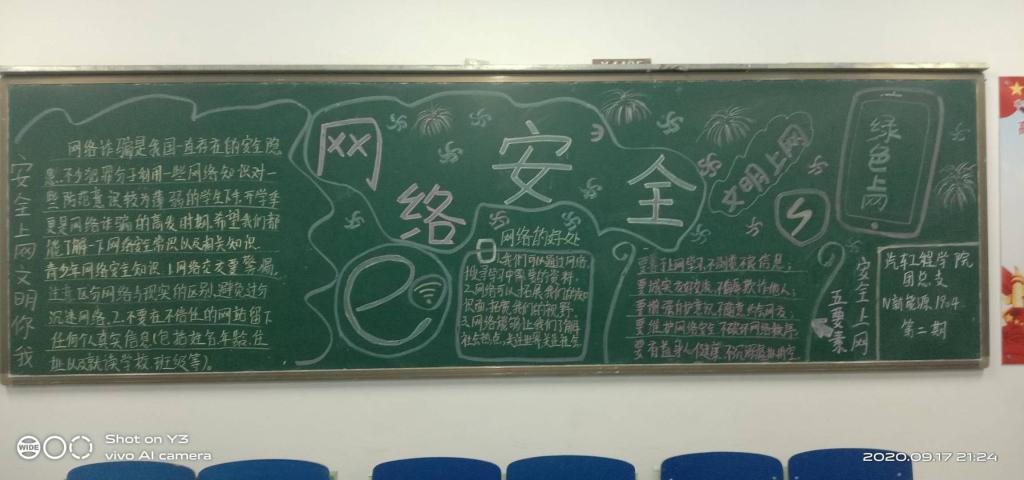 安全上网文明你我
网络诈骗是我国一直存在的安全隐
患,不少犯罪分子利用一些网络知识对一
些防范意识较为薄弱的学生下手.开学季
更是网络诈骗的高发时期,希望我们都
能了解一下网络安全常识以及相关知识.
青少年网络安全知识 1.网络交友要警惕,
注意区分网络与现实的区别,避免过分
沉迷网络.2.不要在不信任的网站留下
任何个人真实信息(包括姓名.年龄.住
址以及就读学校.班级等)。
网络安全
e
网络的好处
1.我们可以通过网络
搜寻学习中需要的资料.
2.网络可以拓展我们的知
识面,拓宽我们的视野.
3.网络能够让我们了解
社会热点,关注世界关注社会
文明上网
绿色上网
要善于上网学习 不浏览不良信息;
要诚实友好交流 不侮辱欺诈他人;
要增强自护意识 不随意约会网友;
要维护网络安全 不破坏网络秩序
要有益身心健康 不沉溺虚拟时空
安全上网
五要素
汽车工程学院
团总支
N新能源19.4
第二期
Shot on Y3
vivo AI camera
WIDE
2020.09.17 21:24